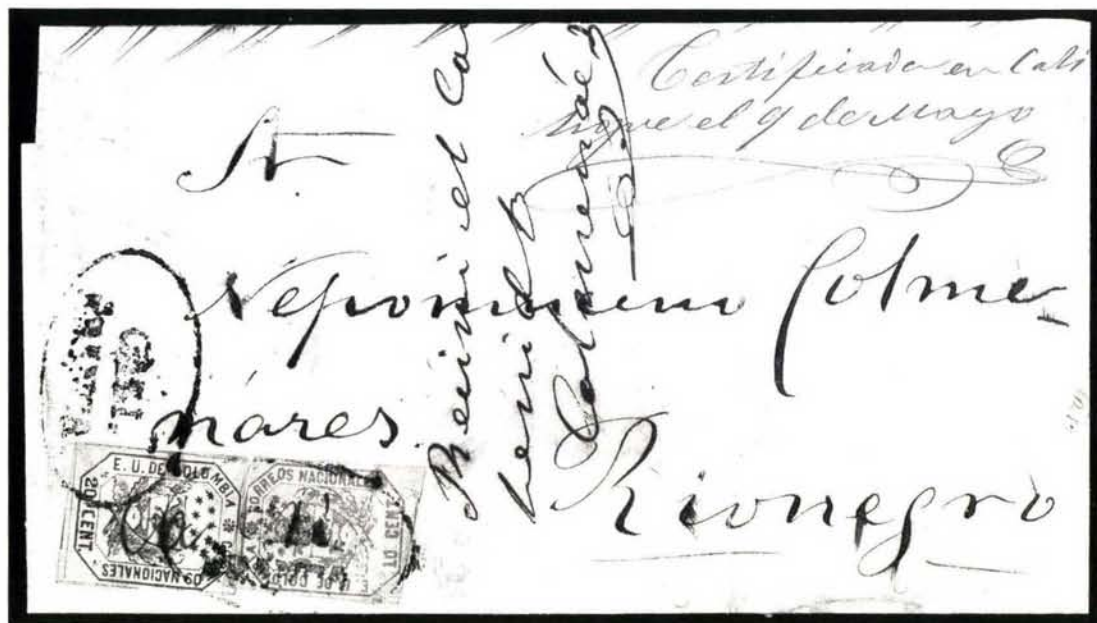 Certificada en Cali
sigue el 9 de Mayo
A
Nepomuceno Colme-
nares.
Rionegro
Recivi el
Colmenares
E. U. DE COLOMBIA
20 CENT.
OS NACIONALES
CORREOS NACIONALES
CENT
DE COLO
Cali